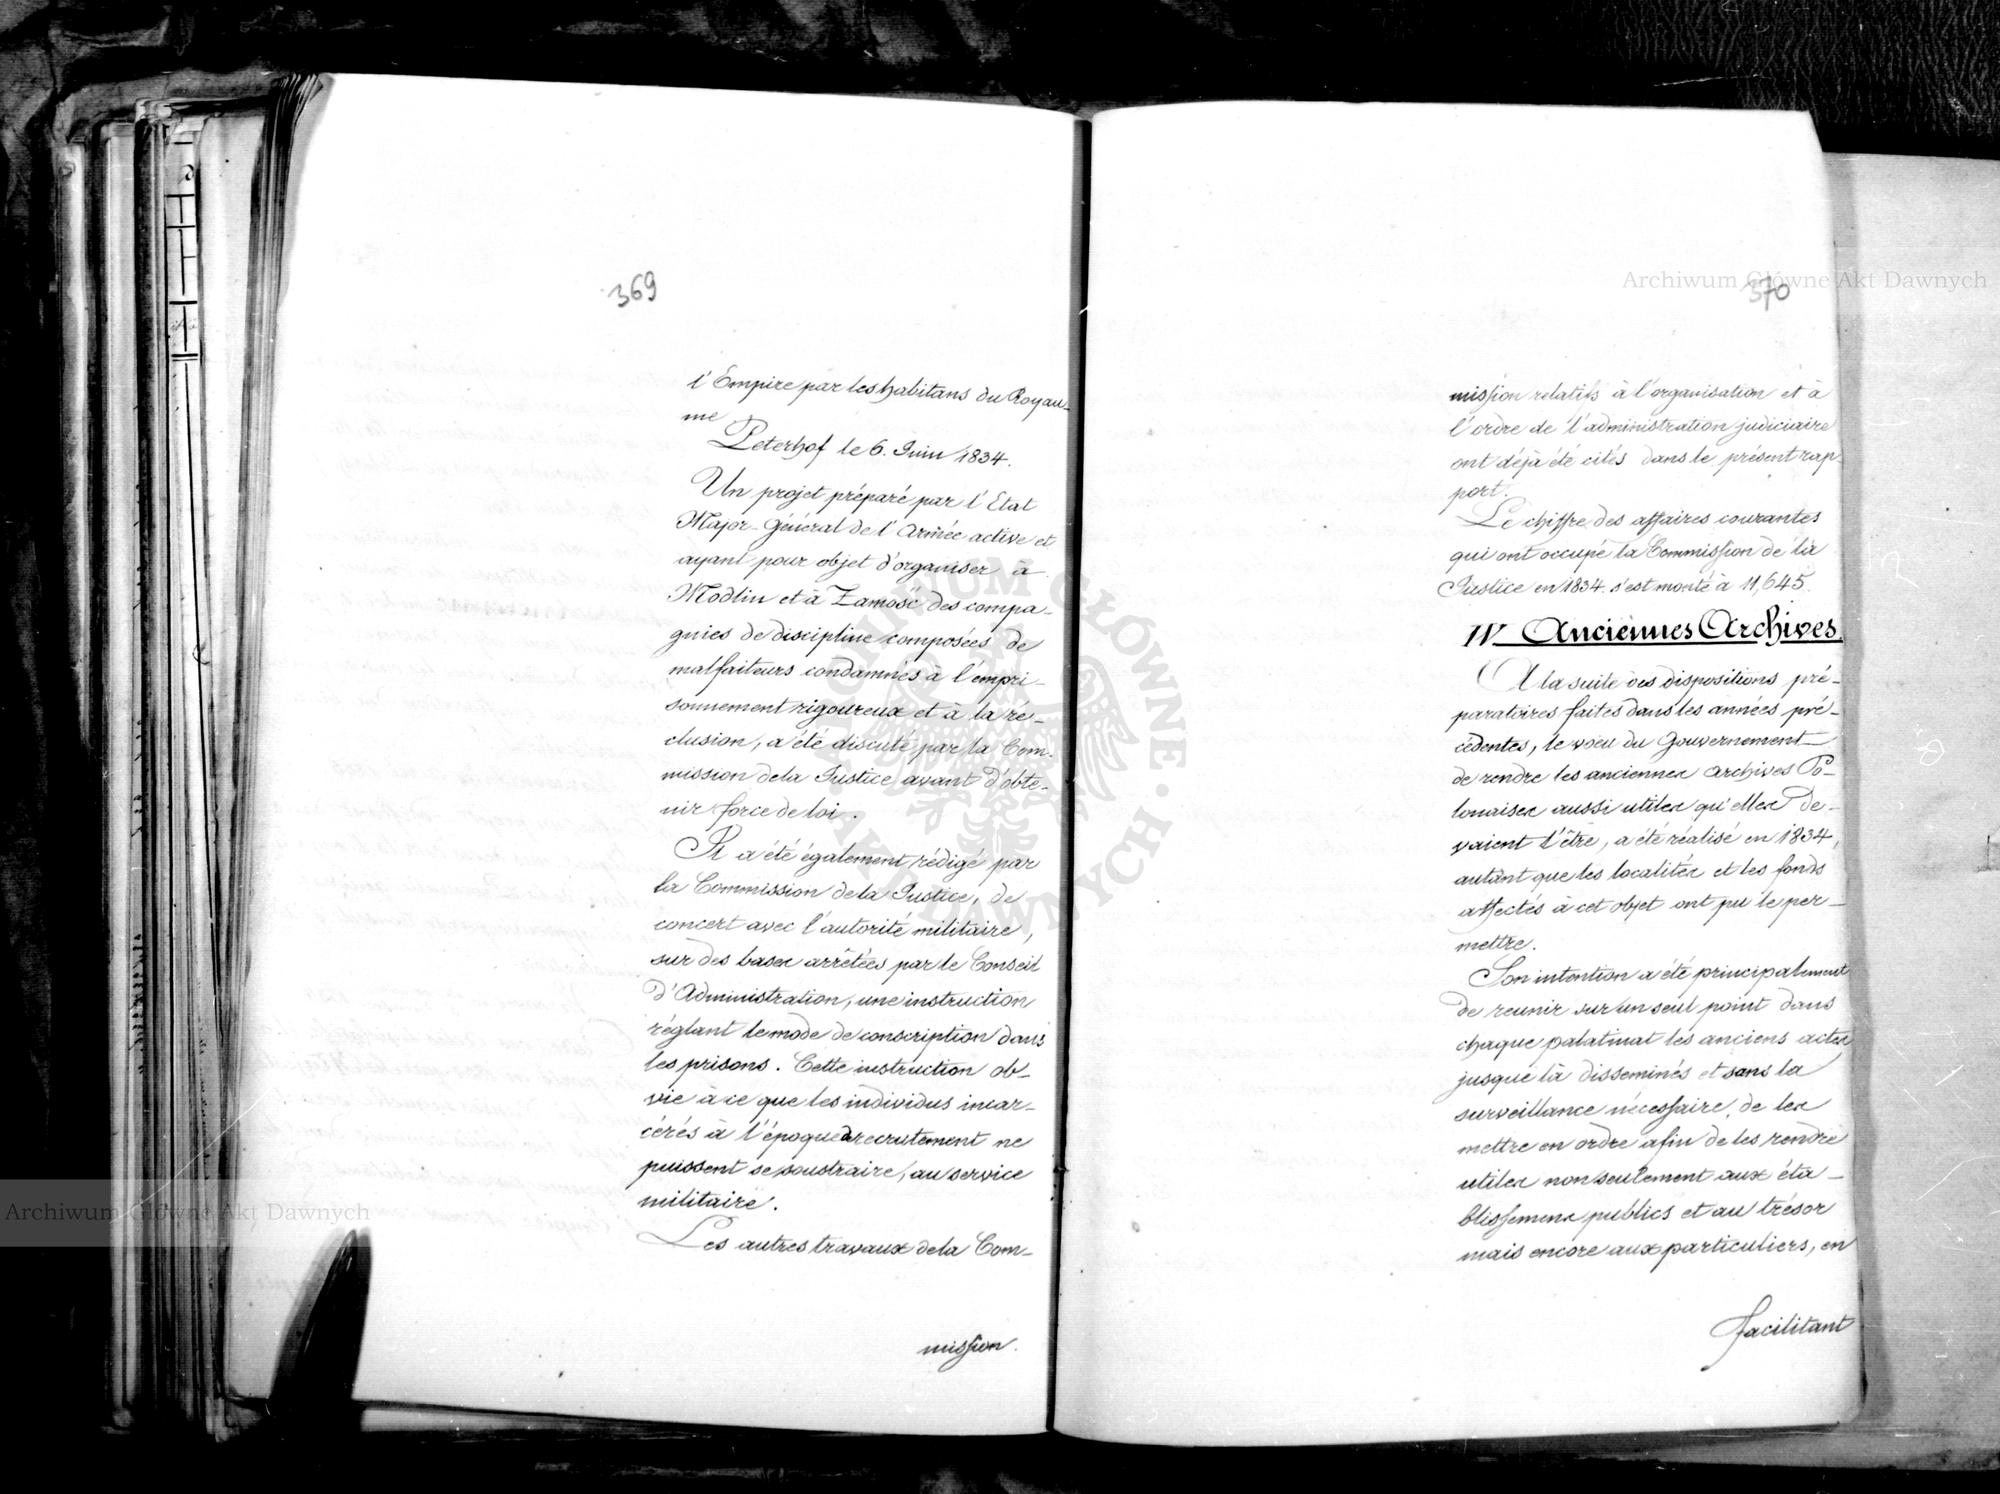 369
l'Empire par les habitans du Royau-
me
Peterhof le 6. Juin 1834.
Un projet préparé par l'Etat
Major-Général de l'Armée active et
ayant pour objet d'organiser à
Modlin et à Zamość des compa-
gnies de discipline composées de
malfaiteurs condamnés à l'empri-
sonnement rigoureux et à la ré-
clusion, a été discuté par la Com-
mission de la Justice avant d'obte-
nir force de loi.
Il a été également rédigé par
la Commission de la Justice, de
concert avec l'autorité militaire,
sur des bases arrêtées par le Conseil
d'Administration, une instruction
réglant le mode de conscription dans
les prisons. Cette instruction ob-
vie à ce que les individus incar-
cérés à l'époque de recrutement ne
puissent se soustraire, au service
militaire.
Les autres travaux de la Com-
mission.
370
mission relatifs à l'organisation et à
l'ordre de l'administration judiciaire
ont déjà été cités dans le présent rap-
port.
Le chiffre des affaires courantes
qui ont occupé la Commission de la
Justice en 1834. s'est monté à 11,645.
IV Anciennes Archives.
A la suite des dispositions pré-
paratoires faites dans les années pré-
cédentes, le voeu du Gouvernement
de rendre les anciennes archives Po-
lonaises aussi utiles qu'elles de-
vaient l'être, a été réalisé en 1834,
autant que les localités et les fonds
affectés à cet objet ont pu le per-
mettre.
Son intention a été principalement
de reunir sur un seul point dans
chaque palatinat les anciens actes
jusque là disseminés et sans la
surveillance nécessaire, de les
mettre en ordre afin de les rendre
utiles non seulement aux éta-
blissemens publics et au trésor
mais encore aux particuliers, en
facilitant
Archiwum Główne Akt Dawnych
Archiwum Główne Akt Dawnych
ARCHIWUM GŁÓWNE AKT DAWNYCH